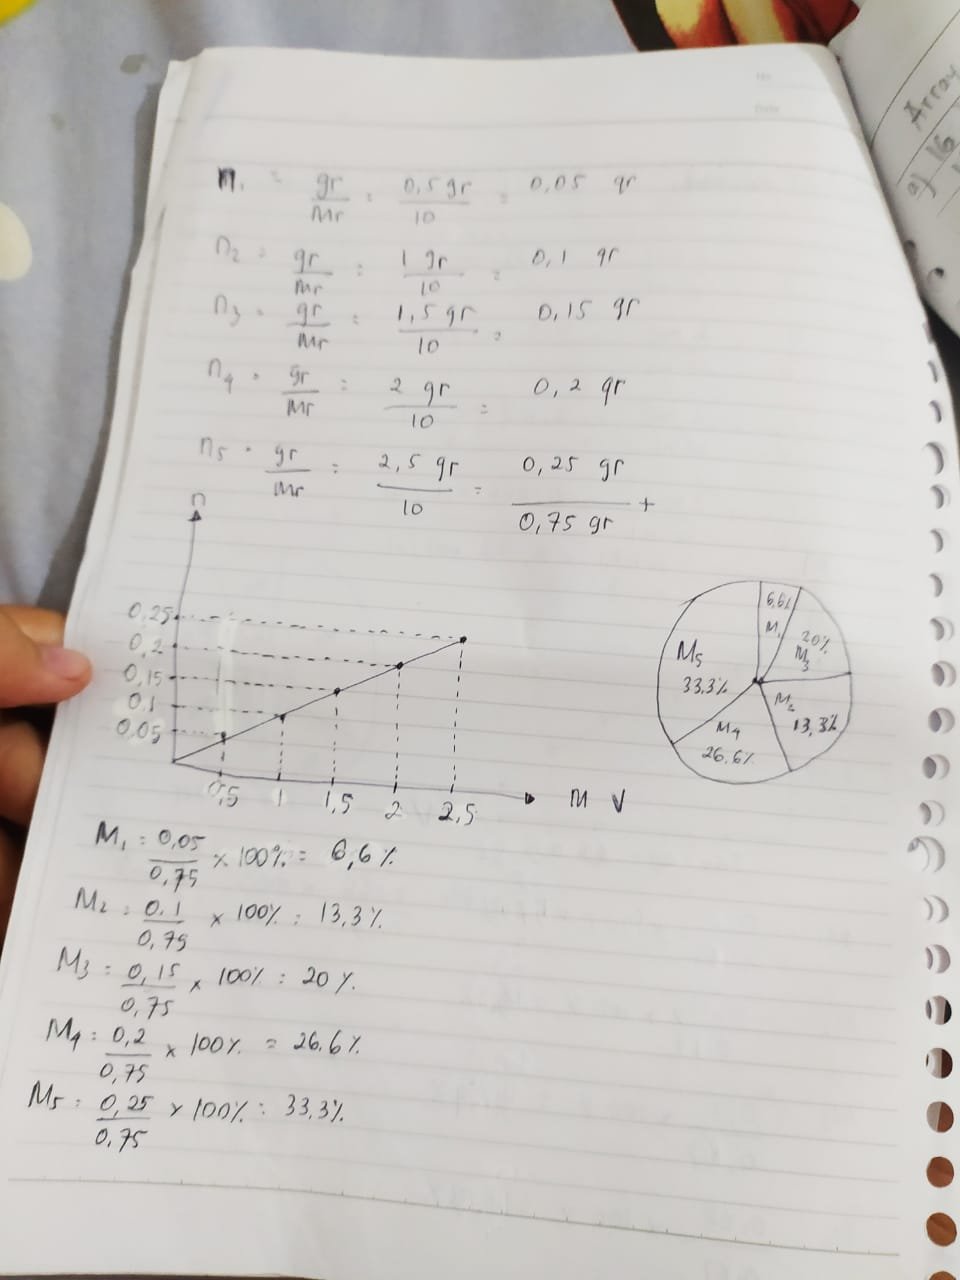 No
Date
Array
a) 16
n1 = gr/Mr = 0,5 gr/10 = 0,05 gr
n2 = gr/Mr = 1 gr/10 = 0,1 gr
n3 = gr/Mr = 1,5 gr/10 = 0,15 gr
n4 = gr/Mr = 2 gr/10 = 0,2 gr
n5 = gr/Mr = 2,5 gr/10 = 0,25 gr
0,75 gr +
n
0,25
0,2
0,15
0,1
0,05
0,5 1 1,5 2 2,5 M V
6,6%
M1
20%
M3
M5
33,3%
M2
13,3%
M4
26,6%
M1 = 0,05/0,75 x 100% = 6,6%
M2 = 0.1/0,75 x 100% = 13,3%
M3 = 0,15/0,75 x 100% = 20%
M4 = 0,2/0,75 x 100% = 26.6%
M5 = 0,25/0,75 x 100% = 33,3%